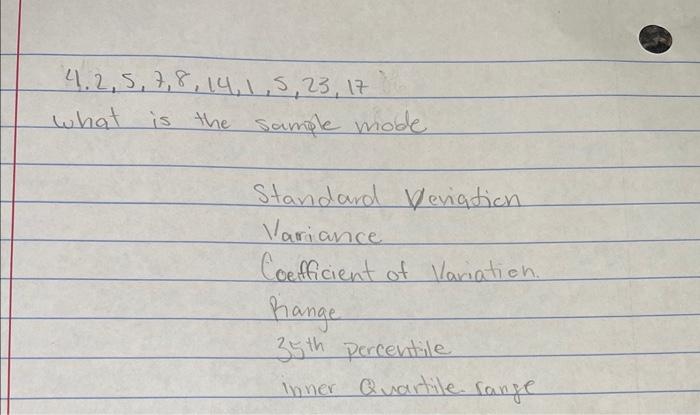 4.2, 5, 7, 8, 14, 1, 5, 23, 17
what is the sample mode
Standard Deviation
Variance
Coefficient of Variation.
Range
35th percentile
inner Quartile range